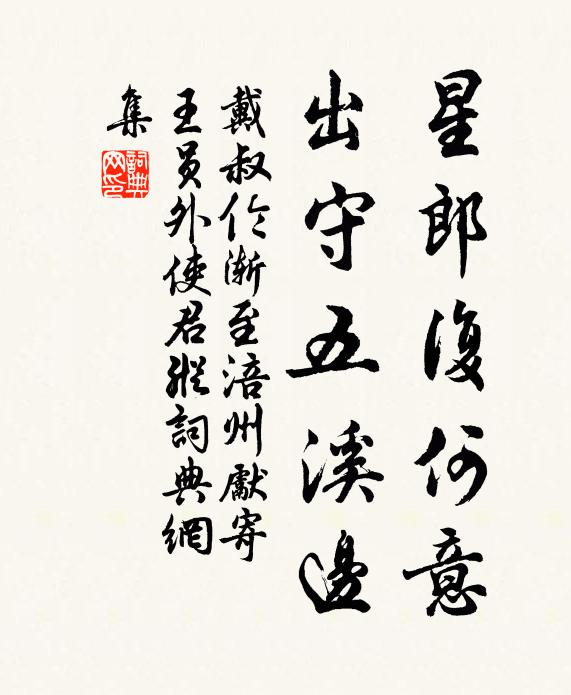 星郎復何意
出守五溪邊
戴叔伦漸至涪州獻寄
王员外使君縱詞典網
集
詞典
网印